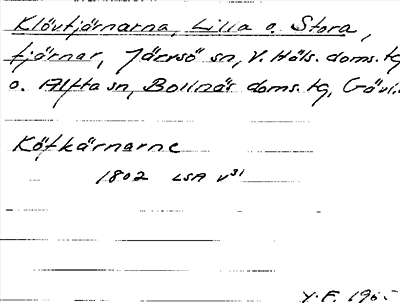 Klövtjärnarna, Lilla o. Stora,
tjärnar, Järvsö sn, V. Häls. doms. tg
o. Alfta sn, Bollnäs doms. tg, Gävl.
Köfkärnarne
1802 LSA V31
Y.F. 19